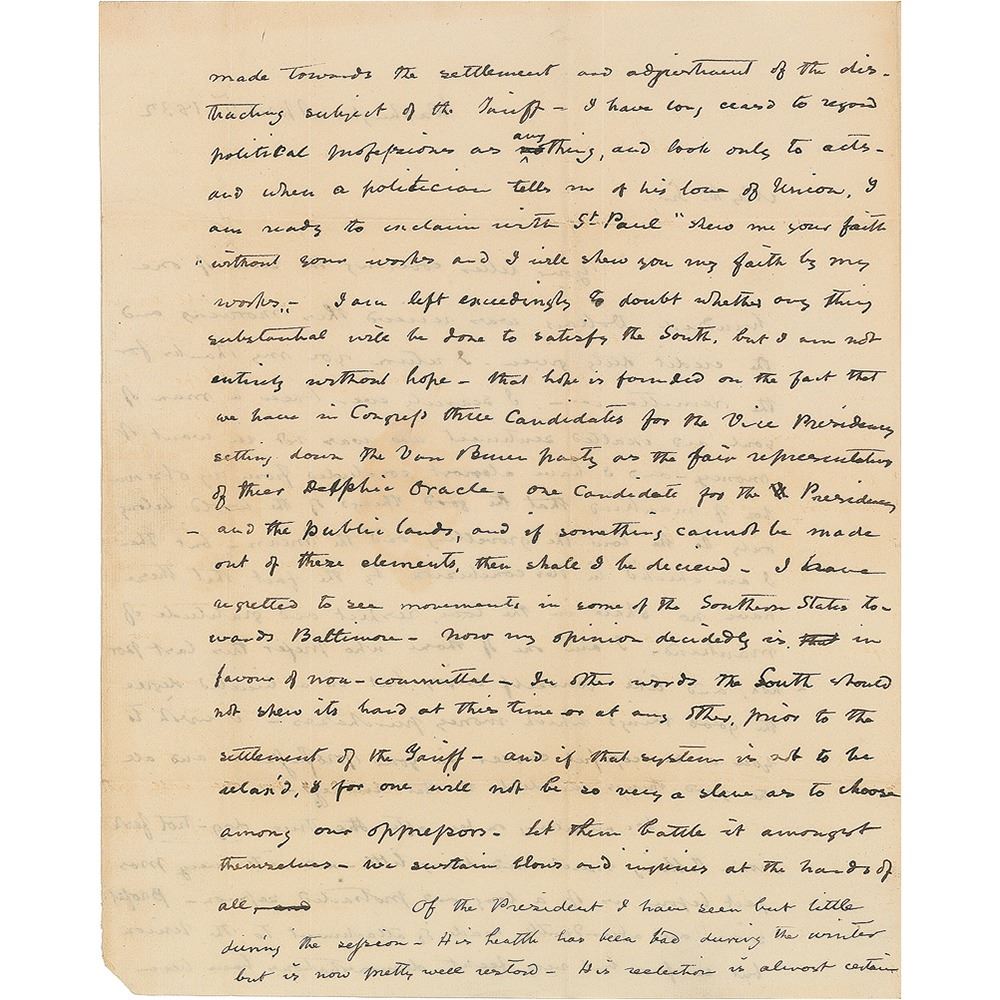 made towards the settlement and adjustment of the dis-
tracting subject of the Tariff - I have long ceasd to regard
political professions as any nothing, and look only to acts -
and when a politician tells me of his love of Union, I
am ready to exclaim with St Paul "shew me your faith
"without your works and I will shew you my faith by my
works". - I am left exceedingly to doubt whether any thing
substantial will be done to satisfy the South, but I am not
entirely without hope - that hope is founded on the fact that
we have in Congress three Candidates for the Vice Presidency
setting down the Van Buren party as the fair representative
of thier Delphic Oracle - one Candidate for the Presidency
- and the public lands, and if something cannot be made
out of these elements, then shall I be decievd - I have
regretted to see movements in some of the Southern States to-
wards Baltimore - Now my opinion decidedly is that in
favour of non-committal - In other words the South should
not shew its hand at this time or at any other, prior to the
settlement of the Tariff - and if that system is not to be
relax'd, I for one will not be so very a slave as to choose
among our oppressors - Let them battle it amongst
themselves - we sustain blows and injuries at the hands of
all, and Of the President I have seen but little
during the session - His health has been bad during the winter
but is now pretty well restord - His reelection is almost certain